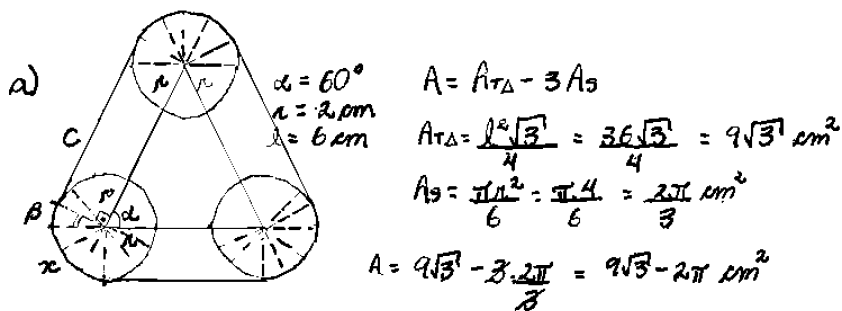 a)
r r
α = 60°
r = 2 cm
l = 6 cm
C
r
β α
r
x
A = A_TΔ - 3 A_S
A_TΔ = l²√3/4 = 36√3/4 = 9√3 cm²
A_S = πr²/6 = π.4/6 = 2π/3 cm²
A = 9√3 - 3.2π/3 = 9√3 - 2π cm²